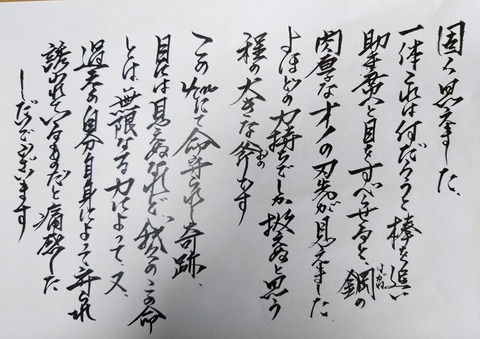 固く思えました、
一体これは何だろうと棒を追い
助手席へと目をすべせると、鋼の
はがね
肉厚な才ノの刃先が見えました
よほどの力持ちでしか扱えぬと思う
程の大きな斧です
おの
この地にて命守られし奇跡、
目には見えぬけれど、我々のこの命
とは無限なる力によって、又、
過去の自分自身によって守られ
誘われているものだと痛感した
しだいでございます